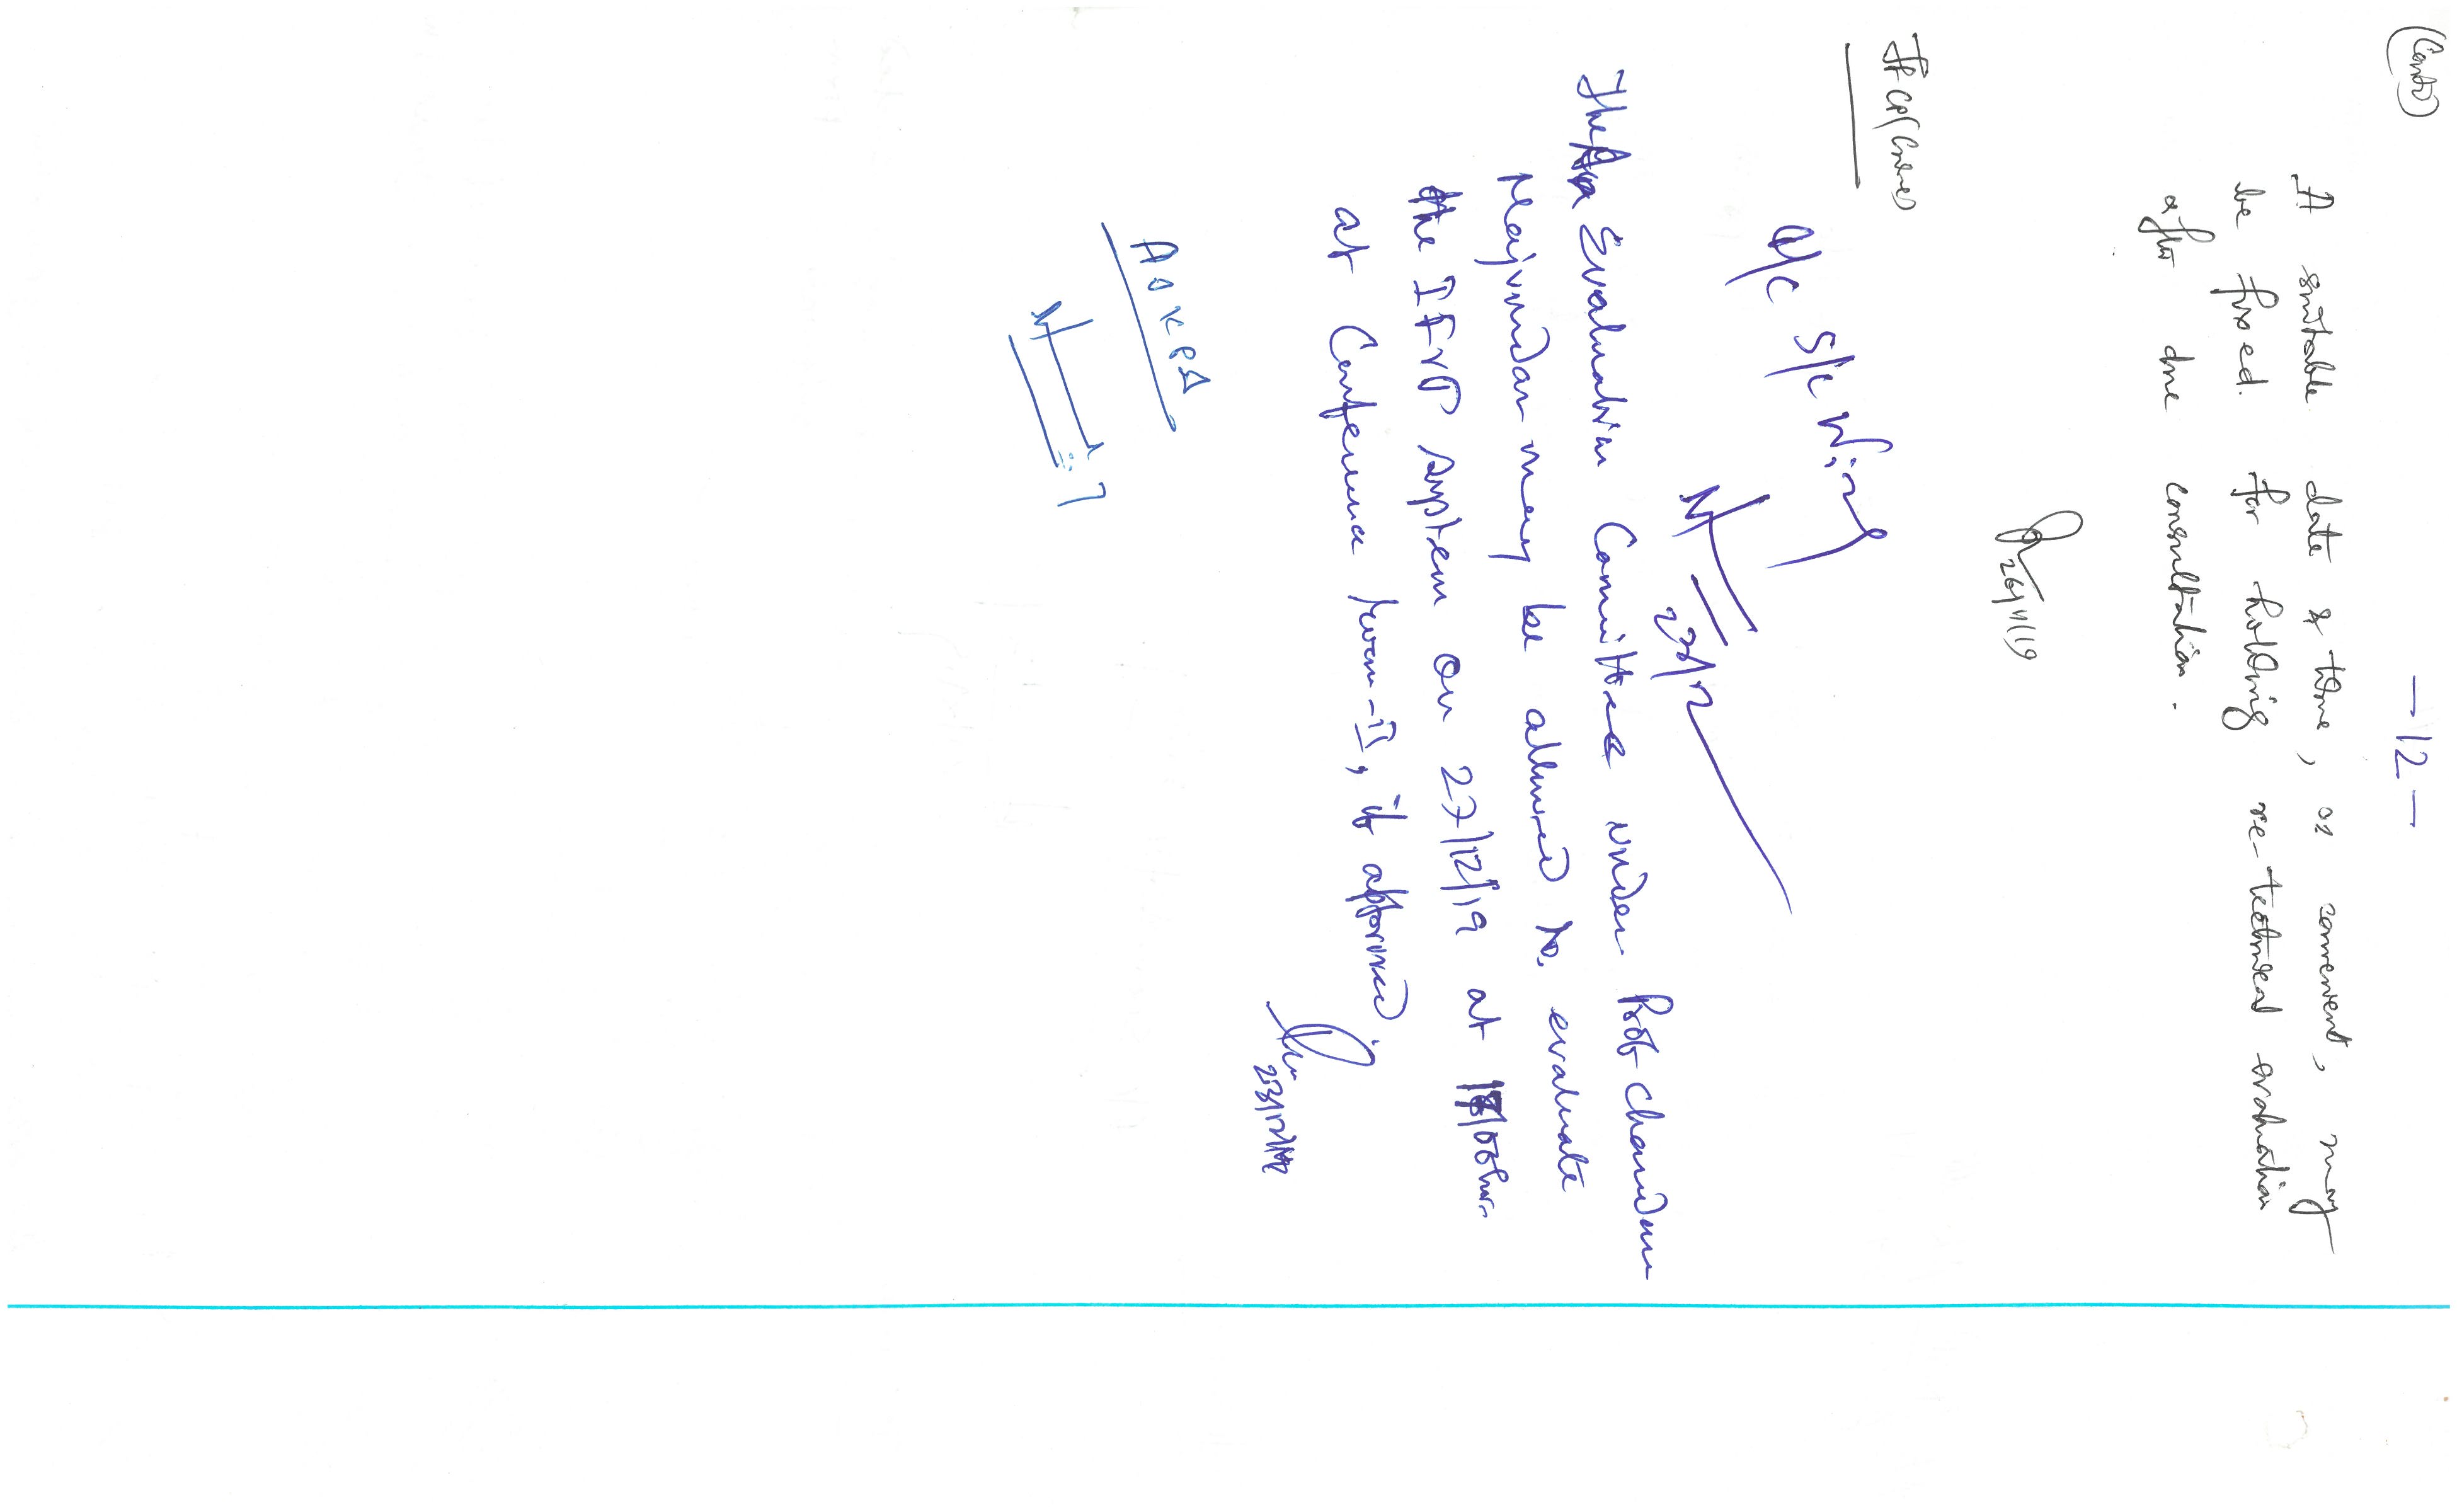 (Contd)
— 12 —
A suitable date & time, as convenient, may
be fixed. for holding re-technical evaluation
after due consultation.
26/11/19
Jt CP (Crime)
O/C S/C Wing
23/12
The Evaluation Committee under Prof Chandan
Majumdar may be allowed to evaluate
the IFVP system on 27/12/19 at hrs.
at Conference Room-II, if approved.
23/12/19